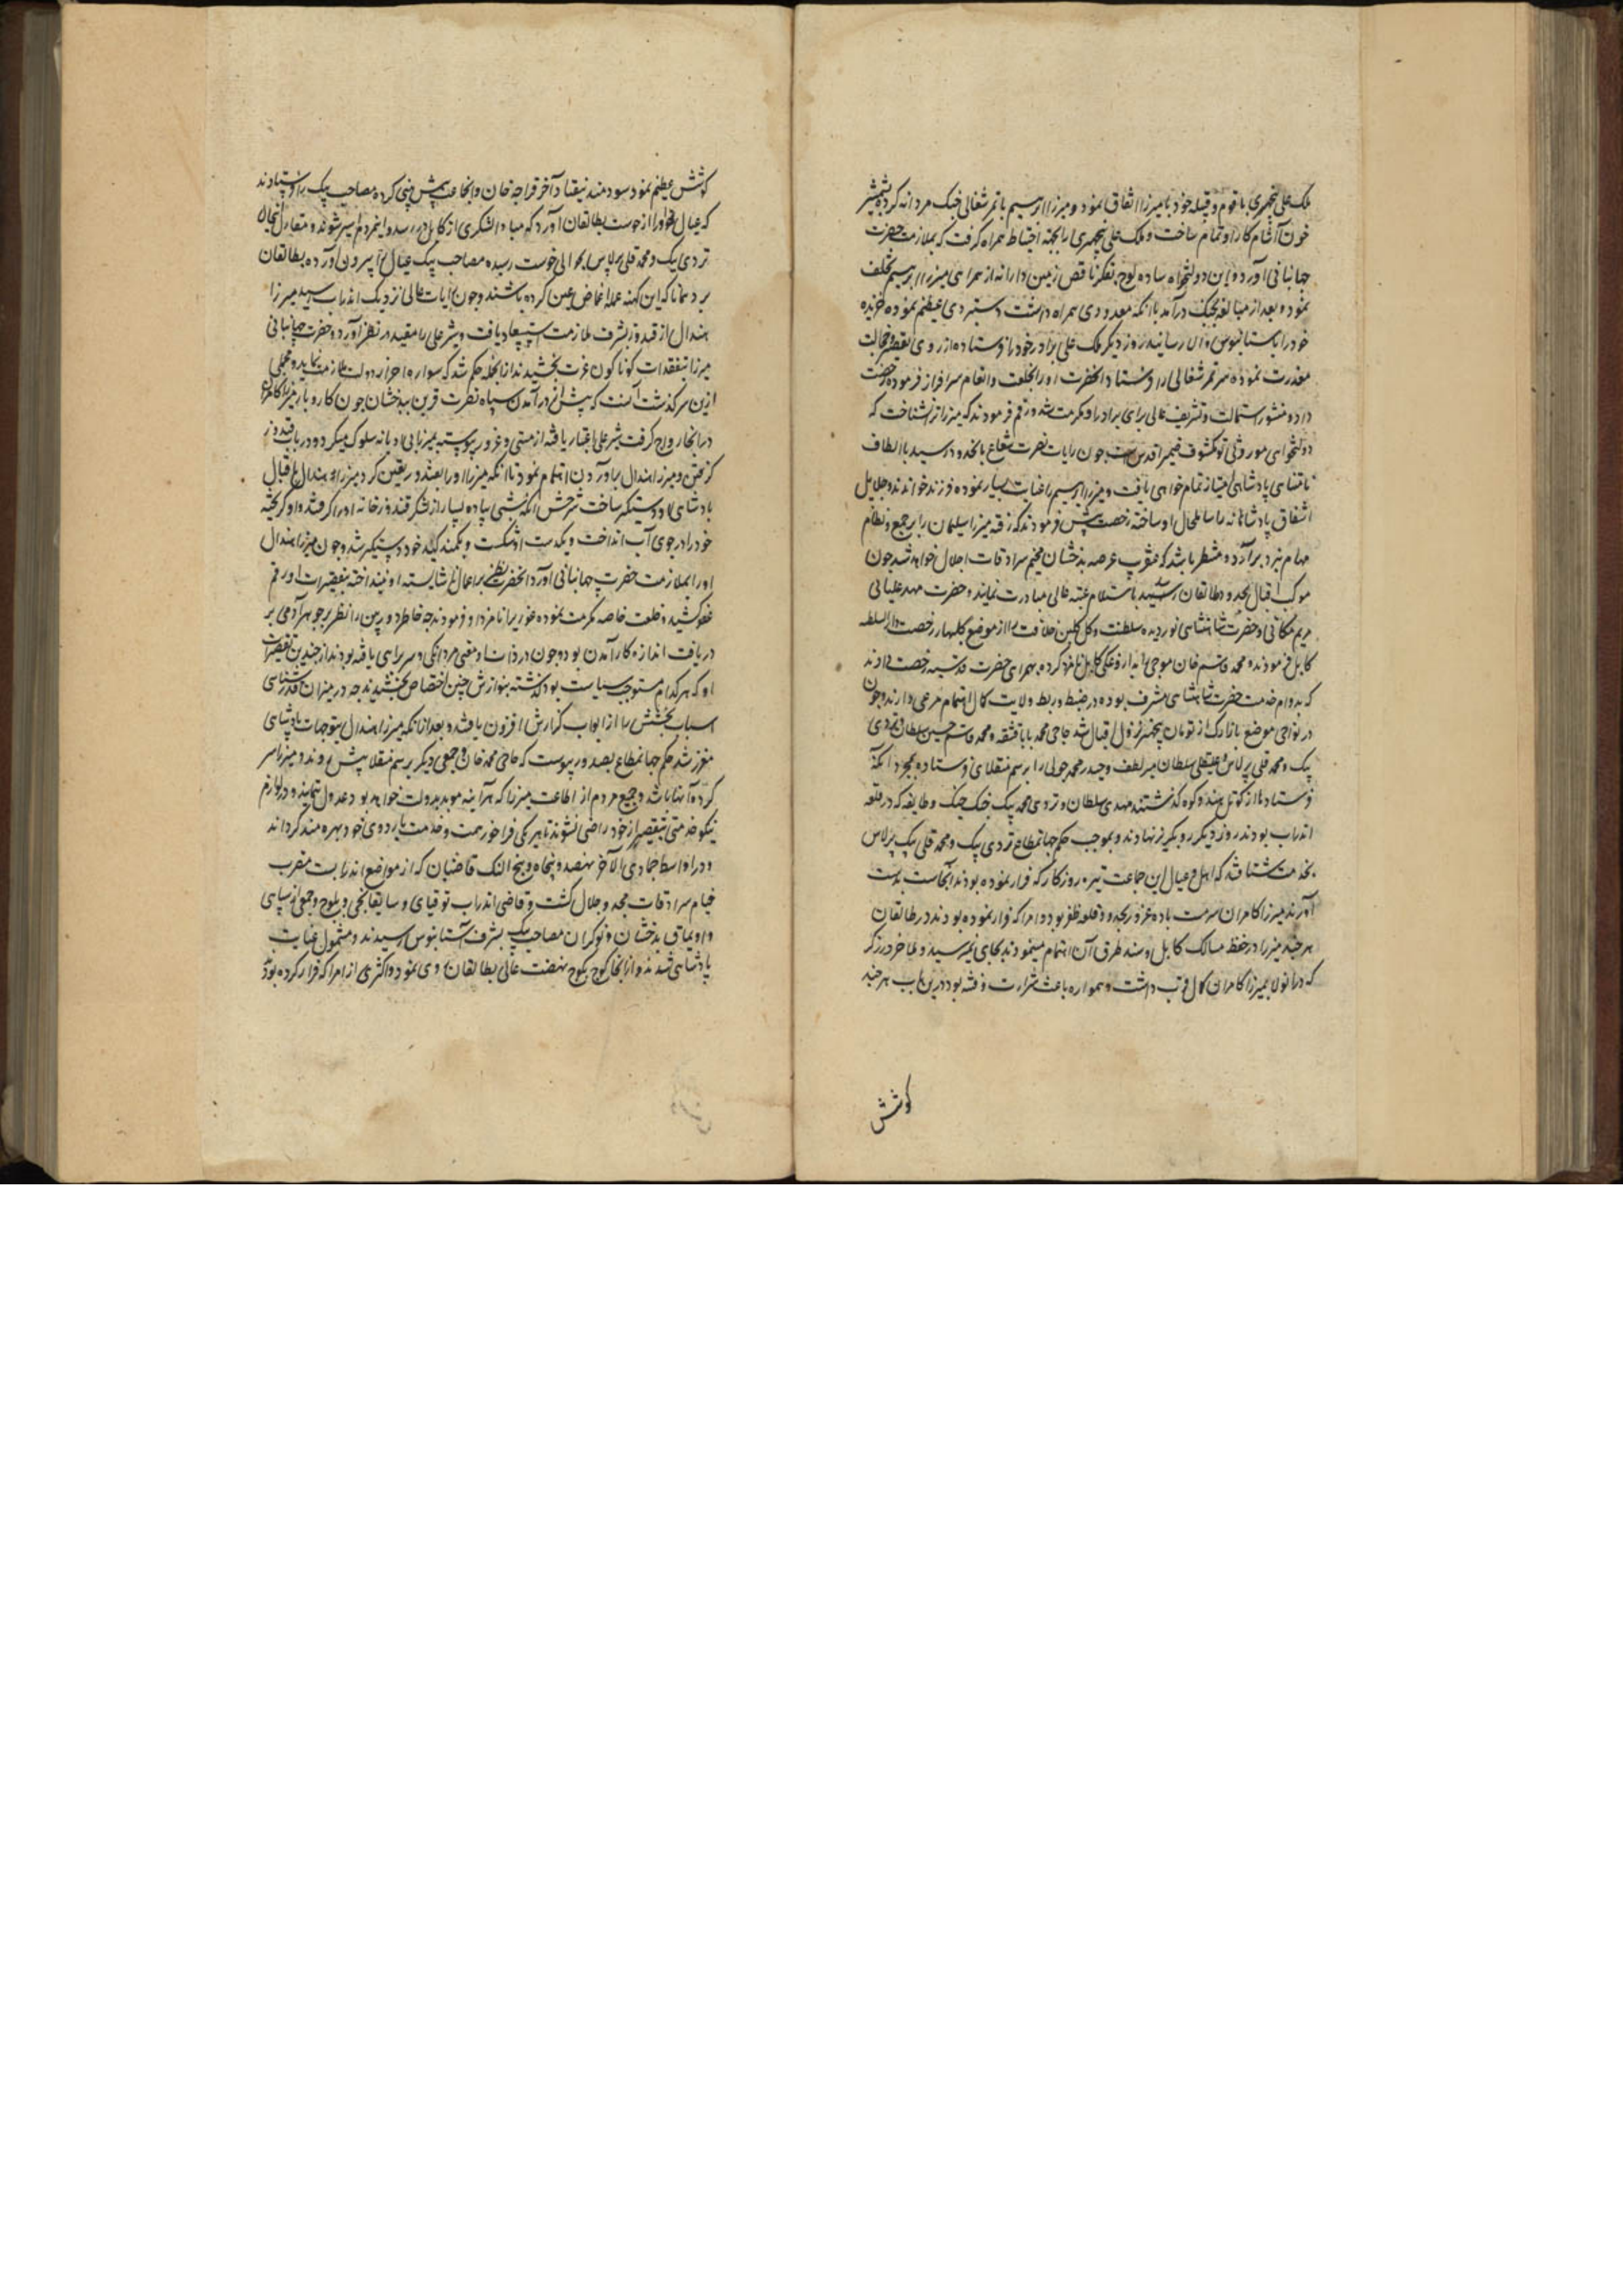 ملک علی پنجهری با قوم و قبیله خود با میرزا اتفاق نمود و میرزا ابراهیم با تمر شغالی جنگ مردانه کرده بشمشیر
خون آشام کار او تمام ساخت و ملک علی پنجهری را بجهة احتیاط همراه گرفت که بملازمت حضرت
جهانبانی آورد و این دولتخواه ساده لوح بفکر ناقص زمین دارانه از همراهی میرزا ابراهیم تخلف
نمود و بعد از مبالغه بجنگ درآمد با آنکه معدودی همراه داشت دستبردی عظیم نموده
خود را باستانبوس والا رسانید روز دیگر ملک علی برادر خود را فرستاده از روی تقصیر و خجالت
معذرت نموده سر تمر شغالی را فرستاد آنحضرت او را بخلعت و انعام سرافراز فرموده رخصت
داده منشور استمالت و تشریف عالی برای برادر او مکرمت شد و رقم فرمودند که میرزا ترا نشناخت که
دولتخواهی موروثی تو مکشوف ضمیر اقدس ست چون رایات نصرت شعاع بانحدود رسید باالطاف
نامتناهی پادشاهی امتیاز تمام خواهی یافت و میرزا ابراهیم را عنایت بسیار نموده فرزند خواندند و جلایل
اشفاق پادشاهانه را شامل حال او ساخته رخصت پیش فرمودند که رفته میرزا سلیمان را بر جمع و نظام
مهام نبرد برآرد و منتظر باشد که عنقریب عرصه بدخشان مخیم سرادقات اجلال خواهد شد چون
موکب اقبال بحدود طالقان رسد باستلام عتبه عالی مبادرت نمایند و حضرت مهد علیائی
مریم مکانی و حضرت شاهنشاهی نور دیده سلطنت و گل گلبن خلافت را از موضع گلبهار رخصت دارالسلطنه
کابل فرمودند و محمد قاسم خان موجی را بداروغگی کابل نامزد کرده بهمراهی حضرت قدسیه رخصت دادند
که بدوام خدمت حضرت شاهنشاهی مشرف بوده در ضبط و ربط ولایت کمال اهتمام مرعی دارند و چون
در نواحی موضع بازارک از تومان پنجهر نزول اقبال شد حاجی محمد بابا قشقه و محمد قاسم حسین سلطان و تردی
بیک و محمد قلی برلاس و علیقلی سلطان میر لطف و حیدر محمد جولی را برسم منقلای فرستاده بمجرد آنکه
فرستاد ها از کوتل هندوکوه گذشتند مهدی سلطان و تردی محمد بیک جنگ جنگ و طایفه که در قلعه
اندراب بودند روز دیگر رو بگریز نهادند و بموجب حکم جهانمطاع تردی بیک و محمد قلی بیک برلاس
بخدمت شتافتند که اهل و عیال این جماعت تیره روزگار که فرار نموده بودند انجاست بدست
آورند میرزا کامران سرمست باده غرور بحدود قلعه ظفر بود و امرا که فرار نموده بودند در طالقان
هرچند میرزا در حفظ مسالک کابل و سد طرق آن اهتمام مینمودند بجای نمیرسید و ملا خرد زرگر
که در آنولا بمیرزا کامران کمال قرب داشت و همواره باعث شرارت و فتنه بود درین باب هرچند
کوشش
کوشش عظیم نمود سودمند نیفتاد آخر قراجه خان و انجماعت پیش بینی کرده مصاحب بیک را فرستادند
که عیال ها را از خوست بطالقان آورد که مبادا لشکری از کابل در رسد و این مردم اسیر شوند و مقارن اینحال
تردی بیک و محمد قلی برلاس بحوالی خوست رسیده مصاحب بیک عیال را بیرون آورده بطالقان
برد همانا که این کهنه عمله اغماض عین کرده باشند و چون رایات عالی نزدیک اندراب رسید میرزا
هندال از قندوز بشرف ملازمت استسعاد یافت و شیر علی را مقید در نظر آورد و حضرت جهانبانی
میرزا بتفقدات گوناگون عزت بخشیدند از انجمله حکم شد که سواره احراز دولت ملازمت نماید و مجملی
ازین سرگذشت آنست که پیش از درآمدن سپاه نصرت قرین ببدخشان چون کار و بار میرزا کامران
در انجا رواج گرفت شیر علی اعتبار یافته از مستی و غرور پیوسته بمیرزا بی ادبانه سلوک میکرد و در باب قندوز
گرفتن و میرزا هندال برآوردن اهتمام نمود تا آنکه میرزا او را بقندوز تعین کرد میرزا هندال باقبال
پادشاهی او را دستگیر ساخت شرحش آنکه شبی پیاده بسیار از لشکر قندوز خانه او را گرفتند و او گریخته
خود را در جوی آب انداخت و یکدست او شکست و بکمند کید خود دستگیر شد و چون میرزا هندال
او را بملازمت حضرت جهانبانی آورد آنحضرت نظر بر اعمال ناشایسته او نینداخته بتقصیرات او رقم
عفو کشید و خلعت خاصه مکرمت نموده غوری را نامزد او فرمودند چه خاطر دوربین را نظر بر جوهر آدمی بر
دریافت اندازه کار آمدن بوده چون در ذات او معنی مردانگی و سربراهی یافته بودند از چندین تقصیرات
او که هر کدام مستوجب سیاست بود گذشته بنوازش چنین اختصاص بخشیدند چه در میزان قدرشناسی
اسباب بخشش را از ابواب گزارش افزون یافتند و بعد از آنکه میرزا هندال بتوجهات پادشاهی
معزز شد حکم جهانمطاع بصدور پیوست که حاجی محمد خان و جمعی دیگر برسم منقلا پیش روند و میرزا سر
کرده آنها باشد و جمیع مردم از اطاعت میرزا که هرآینه موید بدولت خواهد بود عدول ننمایند و در لوازم
نیکو خدمتی بتقصیر از خود راضی نشوند تا هر یکی فراخور همت و خدمت بآرزوی خود بهره مند گرداند
و در اواسط جمادی الآخر نهصد و پنجاه و پنج النک قاضیان که از مواضع اندراب ست مضرب
خیام سرادقات مجد و جلال گشت و قاضی اندراب توقبای و سایقانچی و بلوج و جمعی از سپاهی
و اویماق بدخشان و نوکران مصاحب بیک بشرف آستانبوس رسیدند و مشمول عنایت
پادشاهی شدند و از انجا کوچ بکوچ نهضت عالی بطالقان روی نمود و اکثری از امرا که فرار کرده بودند